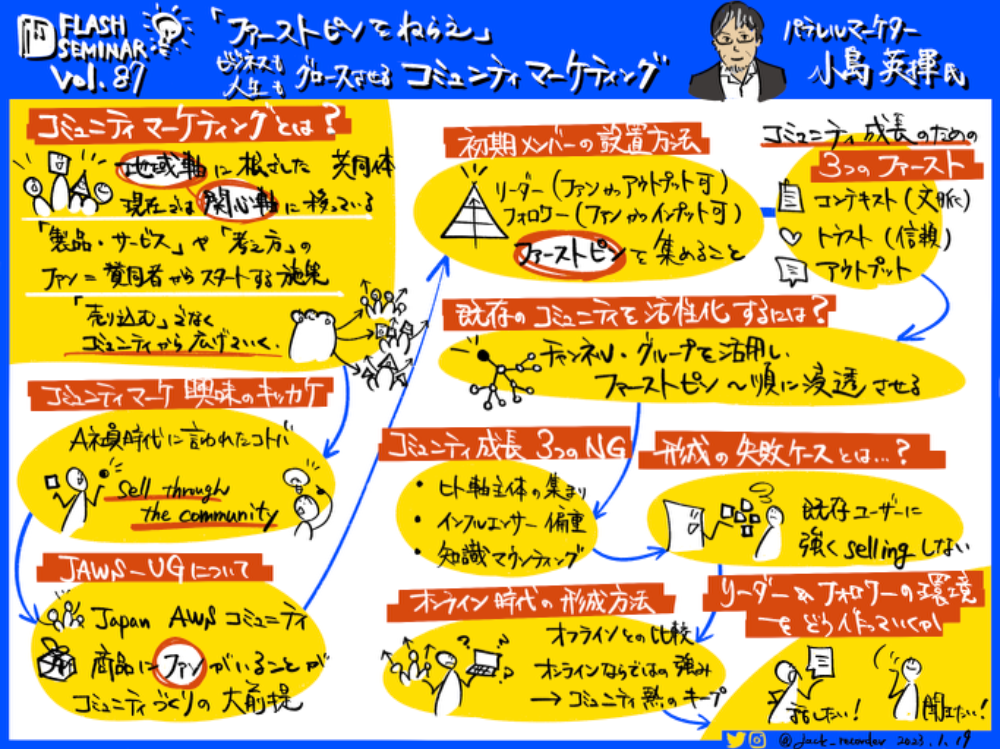 FLASH
SEMINAR
Vol.87
「ファーストピンをねらえ」
ビジネスも
人生も グロースさせる コミュニティマーケティング
パラレルマーケター
小島 英揮氏
コミュニティマーケティングとは?
地域軸に根ざした 共同体
現在では 関心軸に移っている
「製品・サービス」や「考え方」の
ファン=賛同者からスタートする施策
「売り込む」でなく
コミュニティから広げていく。
コミュニティマーケ 興味のキッカケ
A社員時代に言われたコトバ
Sell through
the community
JAWS-UGについて
Japan AWS コミュニティ
商品にファンがいることが
コミュニティづくりの 大前提
初期メンバーの設置方法
リーダー(ファンかつアウトプット可)
フォロワー(ファンかつインプット可)
ファーストピンを集めること
コミュニティ成長のための
3つのファースト
コンテキスト(文脈)
トラスト(信頼)
アウトプット
既存のコミュニティを活性化するには?
チャンネル・グループを活用し
ファーストピン〜順に浸透させる
コミュニティ成長 3つのNG
・ヒト軸主体の集まり
・インフルエンサー偏重
・知識マウンティング
形成の失敗ケースとは…?
既存ユーザーに
強くsellingしない
オンライン時代の形成方法
オフラインとの比較
オンラインならではの強み
→コミュニティ熱のキープ
リーダー&フォロワーの環境
をどう作っていくか
話したい!
聞きたい!
@jack_recorder 2023.1.19